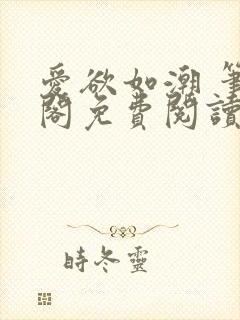 愛欲如潮 筆
閣免費閱讀
時冬靈